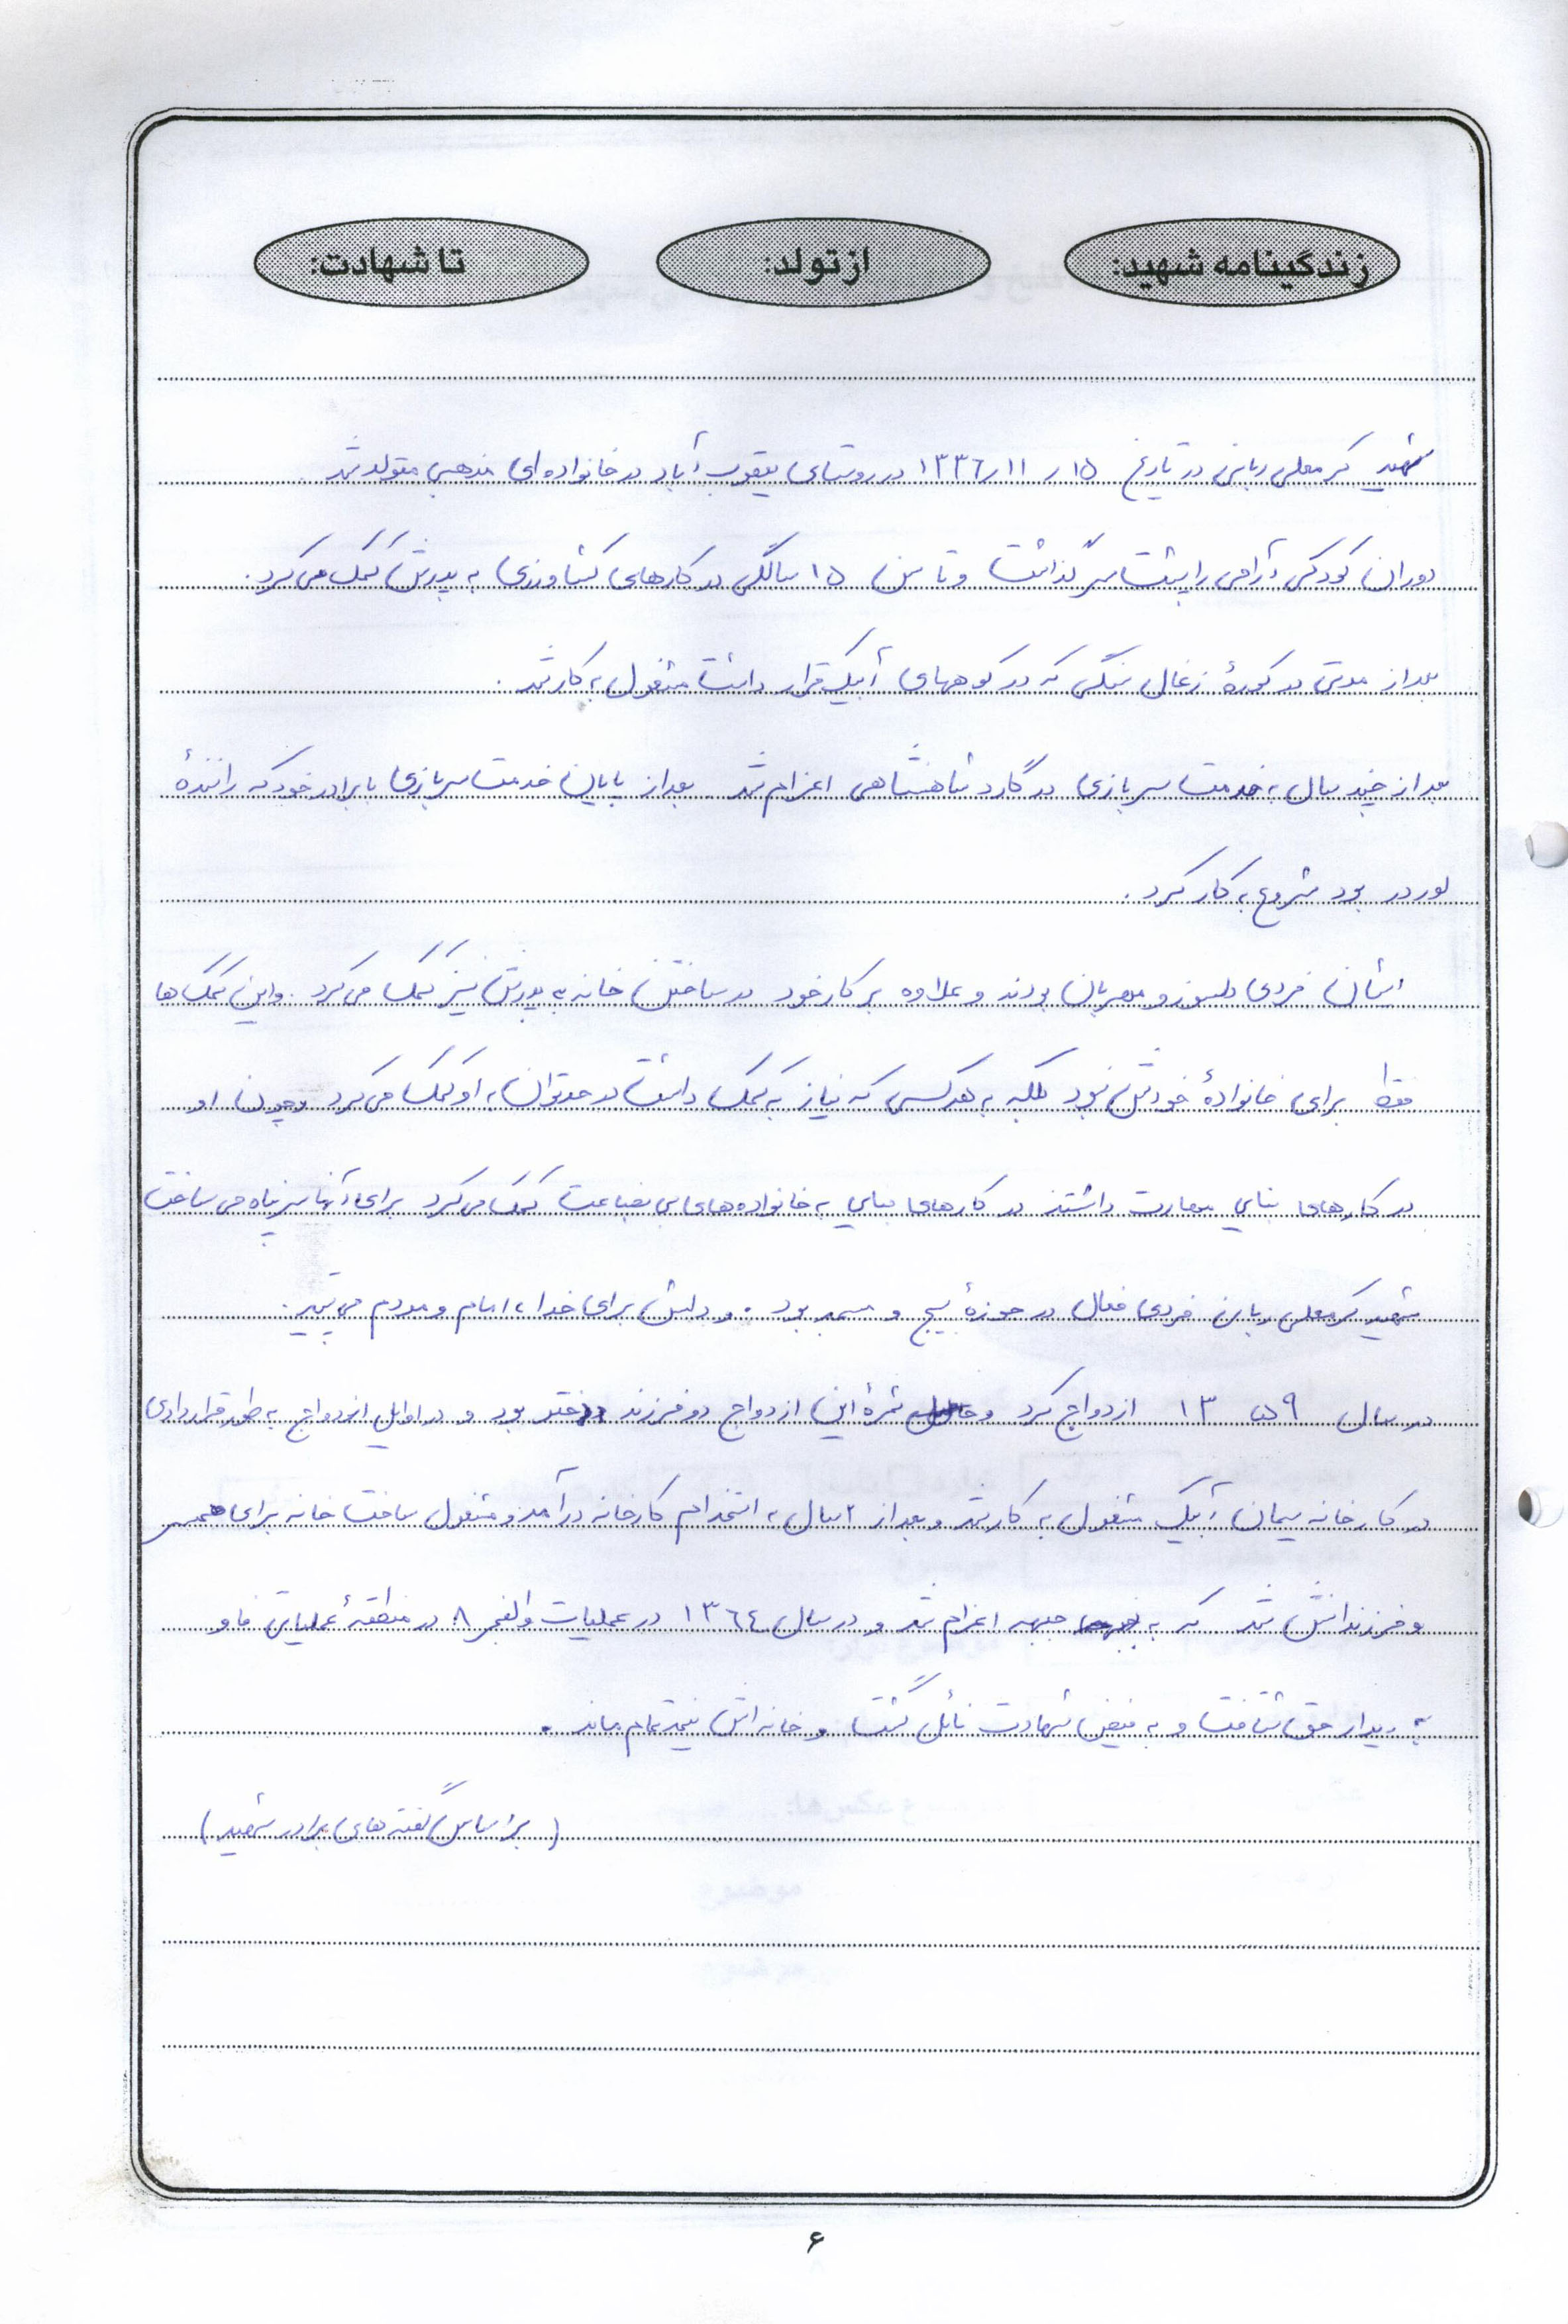 زندگینامه شهید: از تولد: تا شهادت:
شهید کرمعلی ربانی در تاریخ ۱۵ر۱۱ر۱۳۳۶ در روستای یعقوب آباد در خانواده ای مذهبی متولد شد
دوران کودکی آرامی را پشت سر گذاشت و تا سن ۱۵ سالگی در کارهای کشاورزی به پدرش کمک می کرد.
بعد از مدتی در کورهٔ زغال سنگی که در کوههای آبیک قرار داشت مشغول به کار شد.
بعد از چند سال به خدمت سربازی در گارد شاهنشاهی اعزام شد. بعد از پایان خدمت سربازی با برادر خود که رانندهٔ
لودر بود شروع به کار کرد.
ایشان فردی دلسوز و مهربان بودند و علاوه بر کار خود در ساختن خانه به پدرش نیز کمک می کرد. و این کمک ها
فقط برای خانوادهٔ خودش نبود بلکه به هر کسی که نیاز به کمک داشت در حد توان به او کمک می کرد و چون او
در کارهای بنایی مهارت داشتند در کارهای بنایی به خانواده های بی بضاعت کمک می کرد برای آنها سرپناه می ساخت
شهید کرمعلی ربانی فردی فعال در حوزهٔ بسیج و مسجد بود. و دلش برای خدا، امام و مردم می تپید.
در سال ۱۳۵۹ ازدواج کرد و ثمرهٔ این ازدواج دو فرزند دختر بود و در اوایل ازدواج به طور قراردادی
در کارخانه سیمان آبیک مشغول به کار شد و بعد از ۲سال به استخدام کارخانه درآمد و مشغول ساخت خانه برای همسر
و فرزندانش شد که به جبهه اعزام شد و در سال ۱۳۶۴ در عملیات والفجر ۸ در منطقهٔ عملیاتی فاو
به دیدار حق شتافت و به فیض شهادت نائل گشت و خانه اش نیمه تمام ماند.
(بر اساس گفته های برادر شهید)
۶